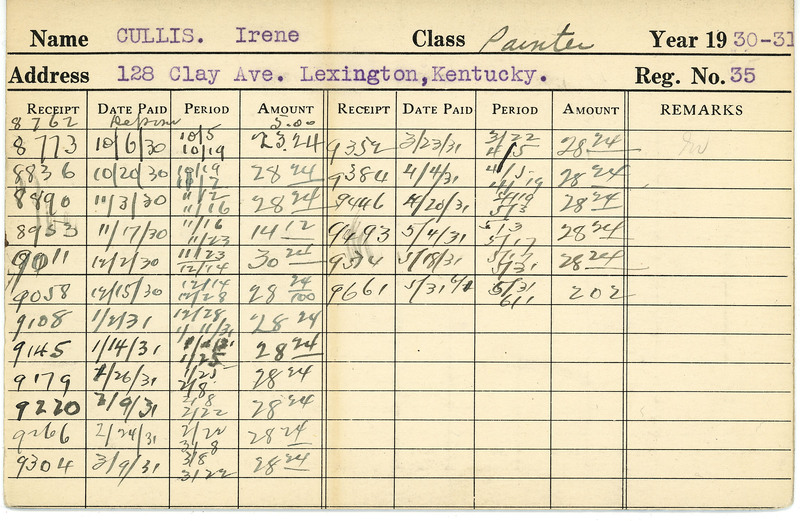 Name CULLIS. Irene Class Painter Year 19 30-31
Address 128 Clay Ave. Lexington, Kentucky. Reg. No. 35
RECEIPT DATE PAID PERIOD AMOUNT RECEIPT DATE PAID PERIOD AMOUNT REMARKS
8762 Deposit 5.00
8773 10/6/30 10/5 10/19 23.24 9352 3/23/31 3/22 4/5 28 24
8836 10/20/30 10/19 11/2 28 24 9384 4/4/31 4/5 4/19 28 24
8890 11/3/30 11/2 11/16 28 24 9446 4/20/31 4/19 5/3 28 24
8953 11/17/30 11/16 11/23 14 12 9493 5/4/31 5/3 5/17 28 24
9011 12/2/30 11/23 12/14 30 24 5/18/31 5/17 5/31 28 24
9058 12/15/30 12/14 12/28 28 24/100 9661 5/31 5/31 6/1 202
9108 1/2/31 12/28 1/11/31 28 24
9145 1/14/31 1/25 28 24
9179 1/26/31 1/25 2/8 28 24
9220 2/9/31 2/8 2/22 28 24
9266 2/24/31 2/22 3/8 28 24
9304 3/9/31 3/8 3/22 28 24